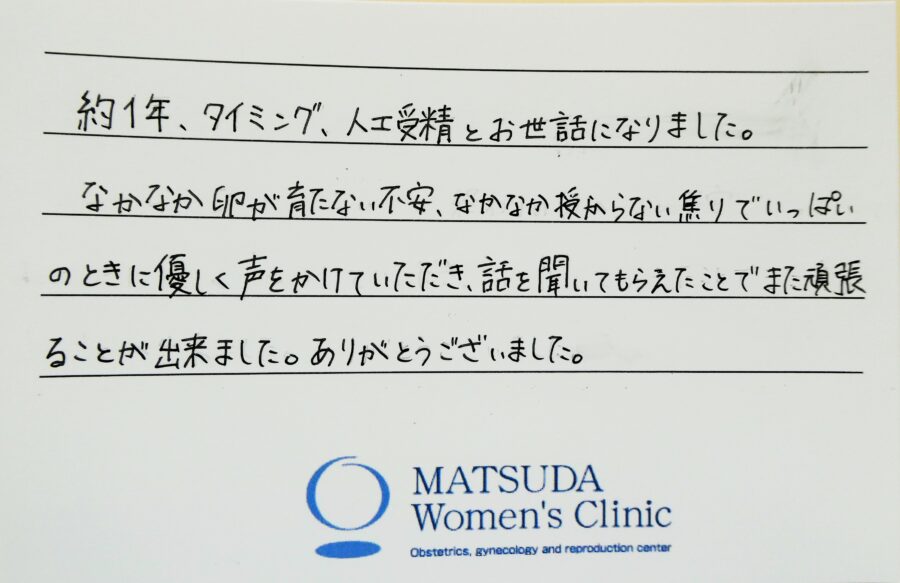 約1年、タイミング、人工受精とお世話になりました。
なかなか卵が育たない不安、なかなか授からない焦りでいっぱい
のときに優しく声をかけていただき、話を聞いてもらえたことでまた頑張
ることが出来ました。ありがとうございました。
MATSUDA
Women's Clinic
Obstetrics, gynecology and reproduction center